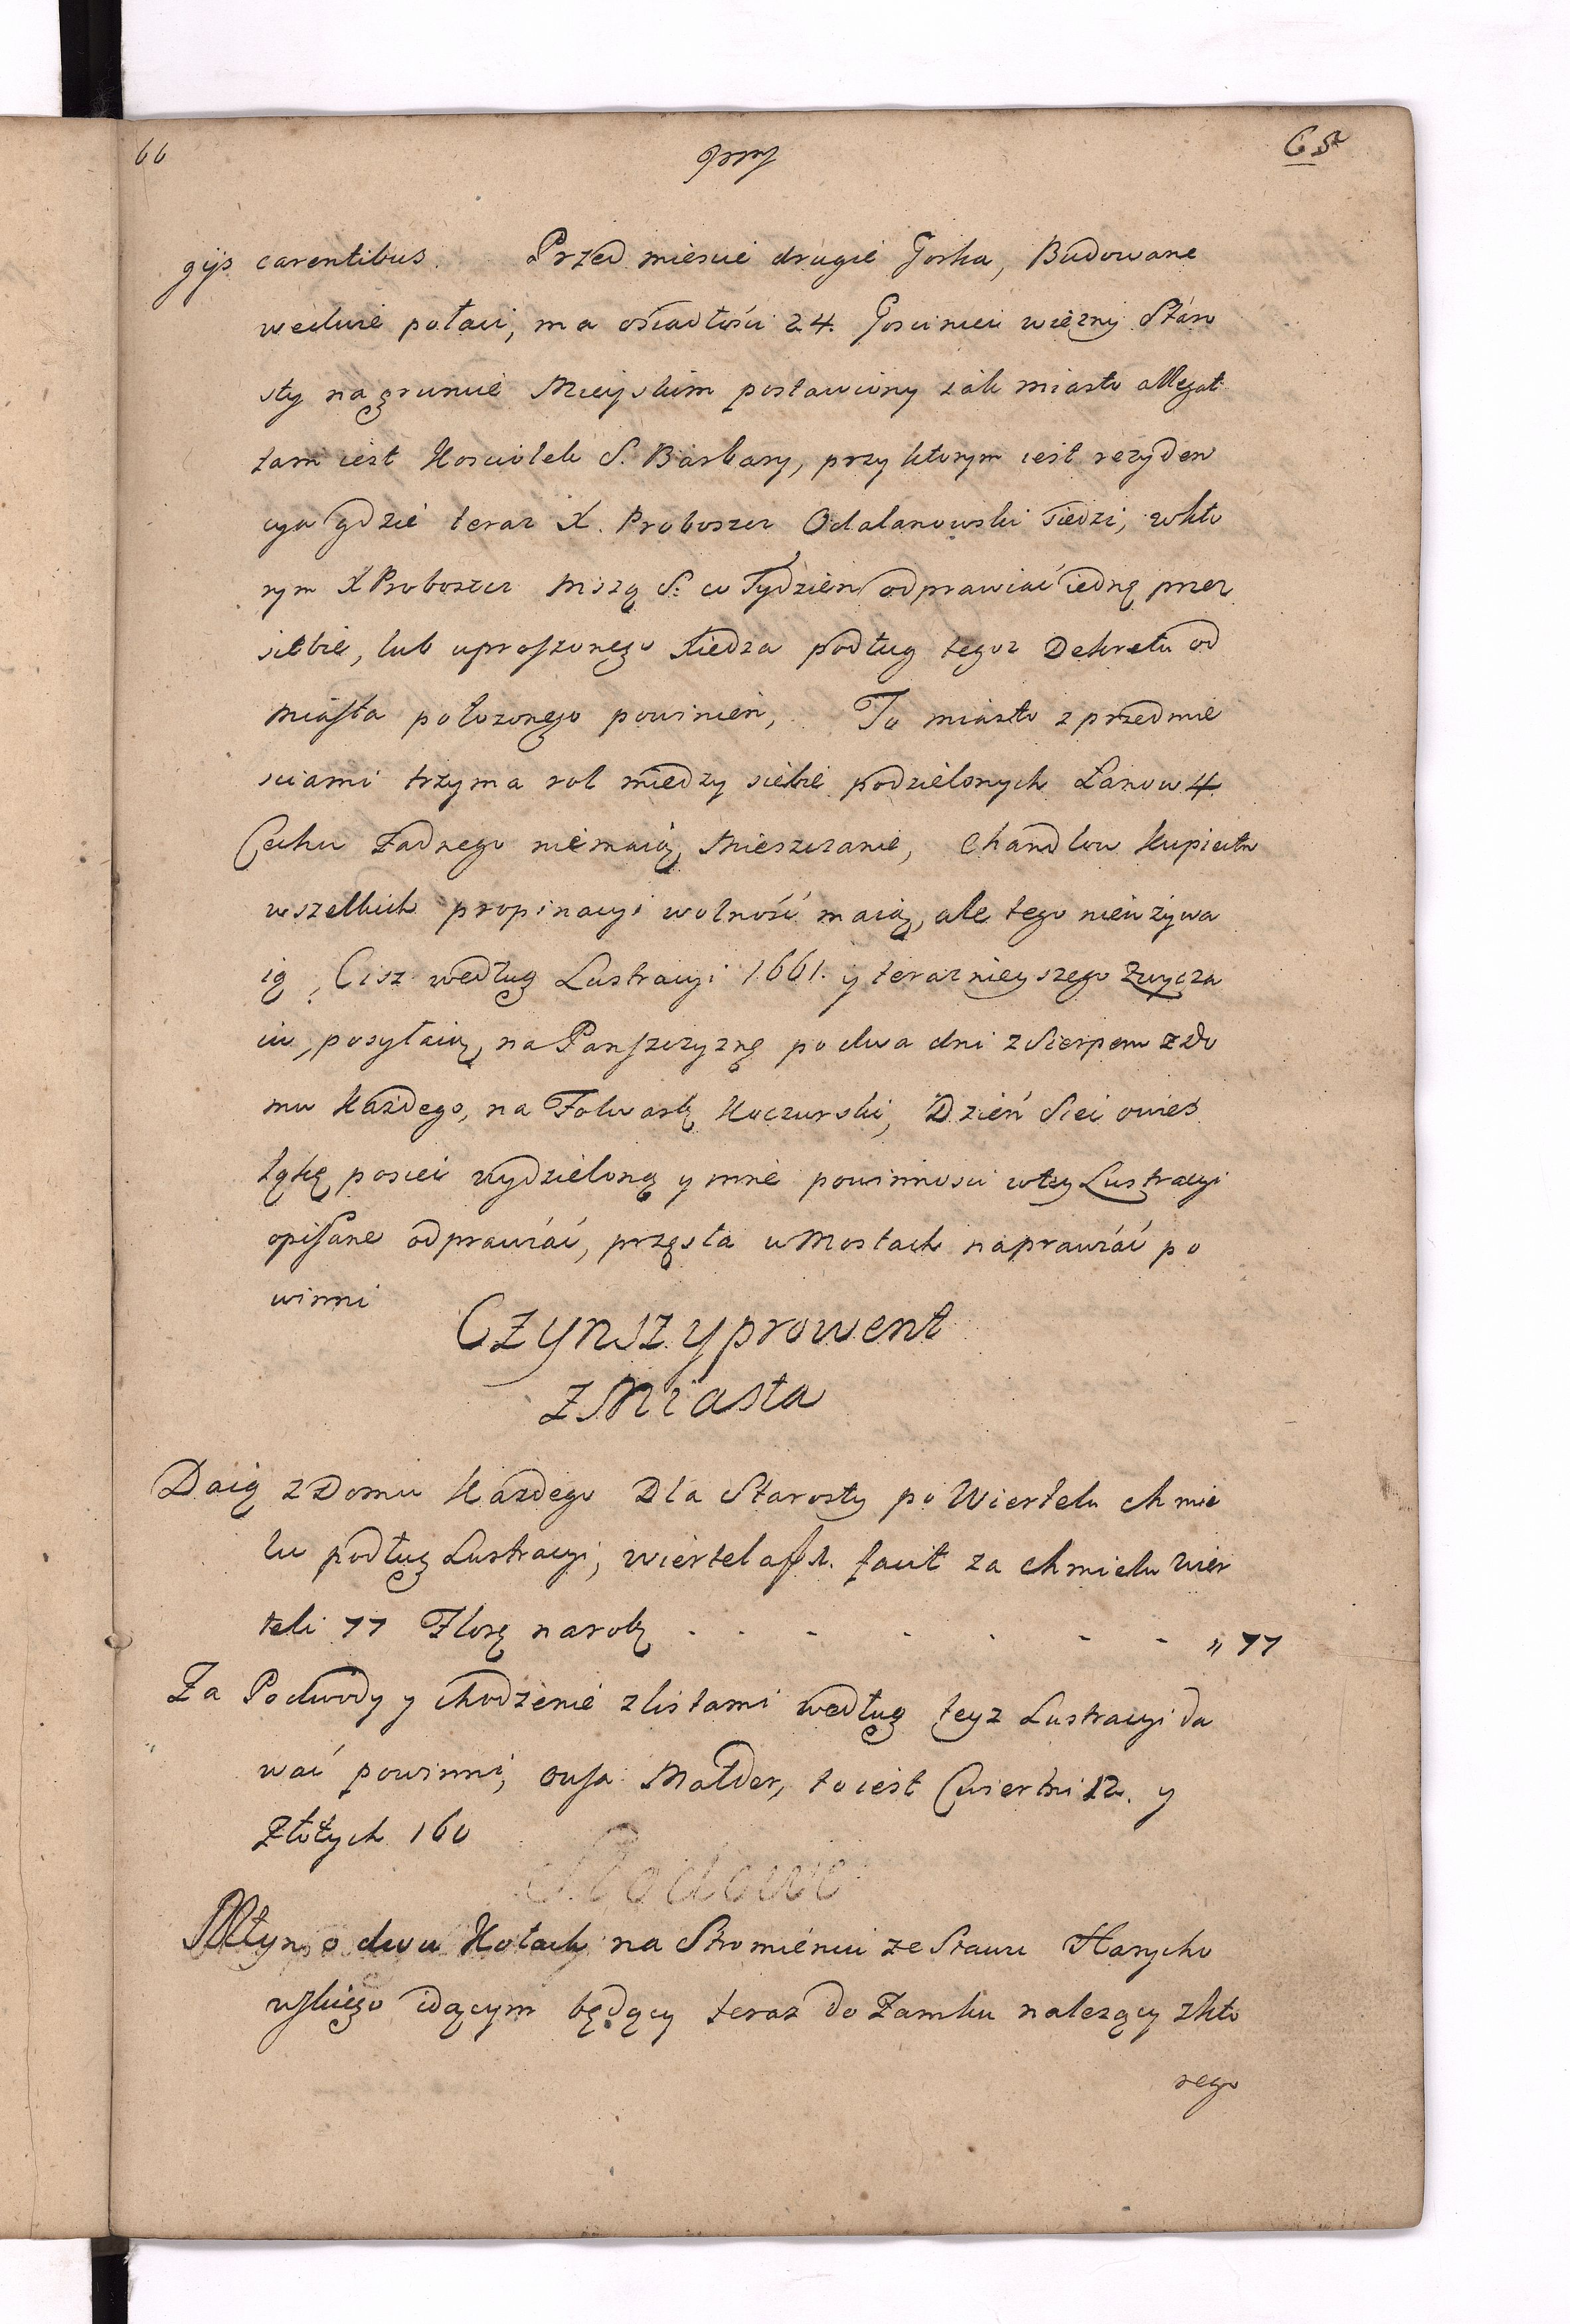 66
gijs carentibus. Przed miescie drugie Gorka, Budowane
wedwie połaci, ma ośiadłości 24. Gosciniec wiezny Stáro
sty na gruncie Mieyskim postawiony iák miasto allegat
tam iest Kosciołek S. Barbary, przy ktorym iest rezyden
cya gdzie teraz X. Proboszcz Odalanowski siedzi, wkto
rym X Proboszcz Mszą S: w Tydzien odprawiać iedną przez
siebie, lub uproszonego Xiedza podług tegoz Dekretu od
Miasta połozonego powinien, To miasto z przedmie
sciami trzyma rol miedzy siebie podzielonych Łanow 4
Cechu Zadnego niemaią, Mieszczanie, Chandlow kupiectw
wszelkich propinacyi wolność maią, ale tego nieużywa
ią, Cisz według Lustracyi 1661. y teraznieyszego Zwycza
iu, posyłaią, na Panszczyznę po dwa dni z Sierpem z do
mu Każdego, na Folwark Koczurski, Dzień Siec owies
łąkę posiec wydzieloną y inne powinnosci wtey Lustracyi
opisane odprawiáć, przęsła w Mostach naprawiáć po
winni
Czynsz y prowent
z Miasta
Daią z Domu Kazdego Dla Starosty po Wiertelu chmie
lu podług Lustracyi, wiertel a fl 1. facit za chmielu Wier
teli 77 Florę narok - - - - - - - " 77
Za Podwody y chodzenie z listami według teyz Lustracyi da
wać powinni, owsa Małder, to iest Cwiertni 12. y
Złotych 160
Młyn o dwu Kołach na Stromieniu ze Stawu Harycho
wskiego idącym będący teraz do Zamku nalezący z kto
rego